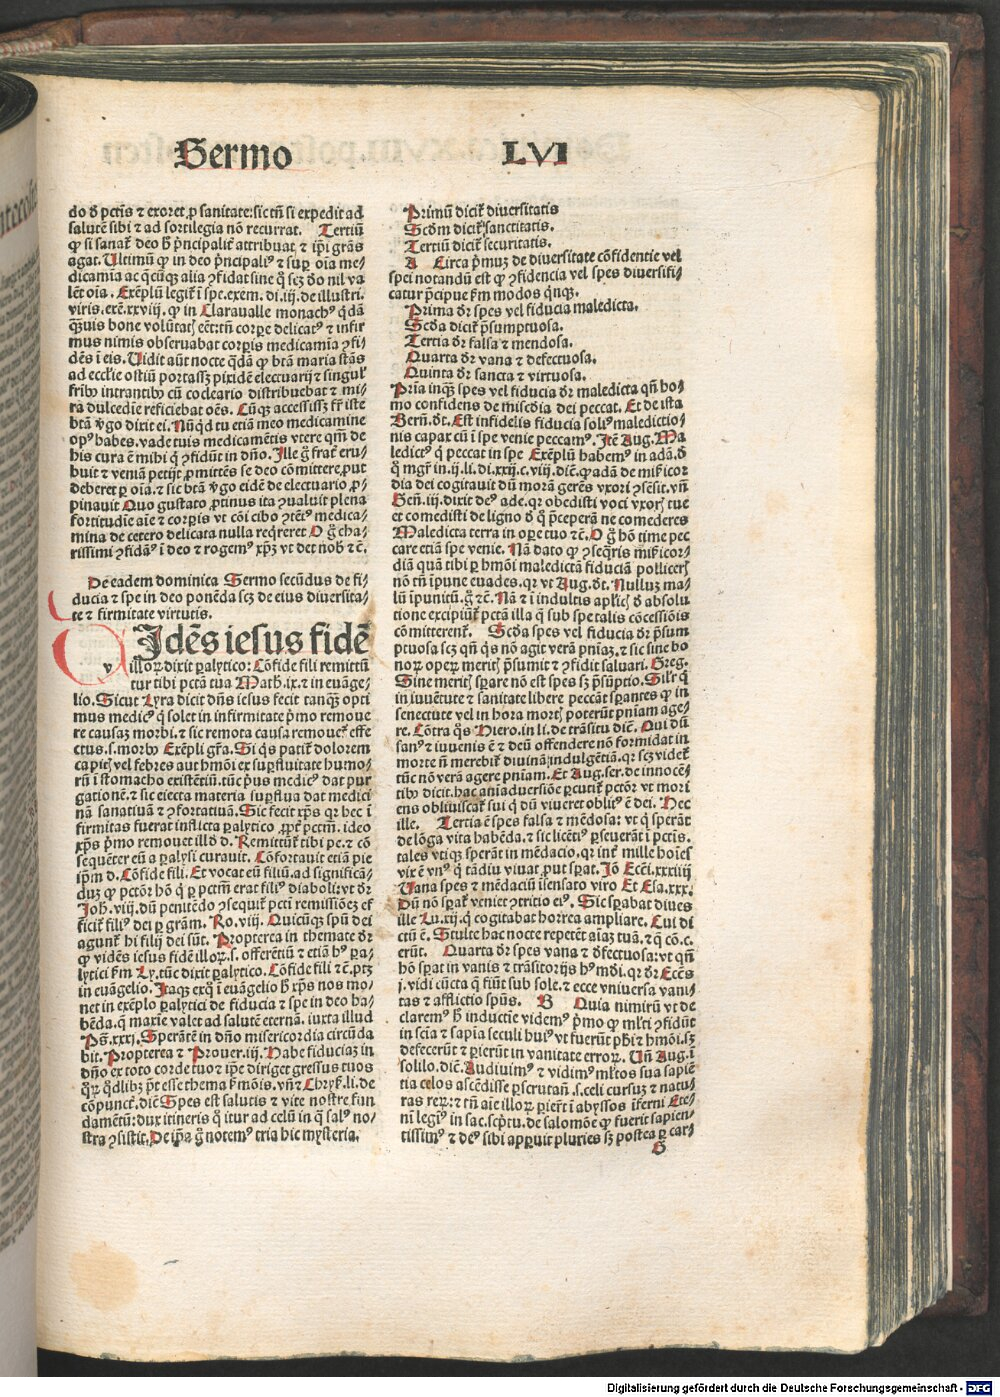 Sermo LVI
do d̄ pctīs ⁊ exoret p̱ sanitate: sic tn̄ si expedit ad
salutē sibi ⁊ ad sortilegia nō recurrat. Tertiū
agat. Ultimū ꝙ in deo prīcipalit᷑ ⁊ sup̱ oīa me-
lēt oīa. Exēplū legit᷑ ī spe. exem. di. iij. de illustri.
viris. exē. xxviij. ꝙ in Claraualle monachꝰ q̄dā
mus nimis obseruabat corp̱is medicamīa ꝯfi-
dēs ī eis. Uidit aūt nocte q̄dā ꝙ btā maria stās
ad eccl'ie ostiū portassꝫ pixidē electuarij ⁊ singul'
fribꝰ intrantibꝰ cū cocleario distribuebat ⁊ mi-
ra dulcedīe reficiebat oēs. Cūqꝫ accessissꝫ fr̄ iste
btā ꝟgo dixit ei. Nūqd tu etiā meo medicamine
opꝰ habes. vade tuis medicamētis vtere qm̄ de
his cura ē mihi q̄ ꝯfidūt in dn̄o. Ille g̊ frat᷑ eru-
buit ⁊ veniā petijt p̱mittēs se deo cōmittere, put
deberet ꝑ oīa. ⁊ sic btā ꝟgo eidē de electuario p̱-
pinauit Quo gustato p̱tinus ita ꝯualuit plena
fortitudīe aīe ⁊ corp̱is vt cōi cibo ꝯtētꝰ medica-
mina de cetero delicata nulla reqͥreret O g̊ cha-
rissimi ꝯfidamꝰ ī deo ⁊ rogemꝰ xp̄ꝫ vt det nob̄ ⁊ c̄.
De eadem dominica Sermo secūdus de fi-
ducia ⁊ spe in deo ponēda scꝫ de eius diuersita-
te ⁊ firmitate virtutis.
Idēs iesus fidē
v illoꝝ dixit ꝑalytico: Cōfide fili remittū
tur tibi pctā tua Math. ix. ⁊ in euāge-
lio. Sicut Lyra dicit dn̄s iesus fecit tanqꝫ opti
mus medicꝰ q̄ solet in infirmitate p̄mo remoue
re causaꝫ morbi. ⁊ sic remota causa remouet᷑ effe
ctus. s. morbꝰ Exēpli gr̄a. Si qͥs patit᷑ dolorem
capitꝭ vel febres aut hmōi ex suꝑfluitate humo-
rū ī stomacho existētiū. tūc pͥus medicꝰ dat pur
gationē. ⁊ sic eiecta materia suꝑflua dat medici
nā sanatiuā ⁊ ꝯfortatiuā. Sic fecit xp̄s qr hec ī
firmitas fuerat inflicta ꝑalytico p̱pt᷑ pctm̄. ideo
xp̄s p̄mo remouet illd̄ d. Remittūt᷑ tibi pc. ⁊ cō
sequēter eū a ꝑalysi curauit. Cōfortauit etiā pie
ip̄m d. Cōfide fili. Et vocat eū filiū. ad significā-
duꝫ ꝙ pctōr hō q̄ ꝑ pctm̄ erat filiꝰ diaboli: vt dr̄
Joh. viij. dū penitēdo ꝯsequit᷑ pcti remissiōeꝫ ef
ficit᷑ filiꝰ dei ꝑ grām. Ro. viij. Quicūqꝫ spū dei
agunt᷑ hi filij dei sūt. Propterea in themate dr̄
ꝙ vidēs iesus fidē illoꝝ. s. offerētiū ⁊ etiā hꝰ ꝑa-
lytici km̄ Ly. tūc dixit ꝑalytico. Cōfide fili ⁊ c̄. ptꝫ
in euāgelio. Itaqꝫ exqͦ ī euangelio h̄ xp̄s nos mo-
net in exēplo ꝑalytici de fiducia ⁊ spe in deo ha-
bēda. q̄ maxīe valet ad salutē eternā. iuxta illud
Ps̄. xxxj. Sperātē in dn̄o misericordia circūda
bit. Propterea ⁊ Prouer. iij. Habe fiduciaꝫ in
dn̄o ex toto corde tuo ⁊ ip̄e diriget gressus tuos
qͦꝝ qͦdlibꝫ pt̄ esse thema fmōis. vn̄ ⁊ Chryẜ. li. de
cōpunct̄. dic̄ Spes est salutis ⁊ vite nostre fun
damētū: dux itineris q̄ itur ad celū in q̄ salꝰ no-
stra ꝯsistit. De ip̄a g̊ notemꝰ tria hic mysteria.
Primū dicit᷑ diuersitatis
Scdm̄ dicit᷑ sanctitatis.
Tertiū dicit᷑ securitatis.
A Circa p̄muꝫ de diuersitate cōfidentie vel
spei notandū est ꝙ ꝯfidencia vel spes diuersifi-
catur p̄cipue km̄ modos qͥnqꝫ.
Prima dr̄ spes vel fiducia maledicta.
Scd̄a dicit᷑ p̄sumptuosa.
Tertia dr̄ falsa ⁊ mendosa.
Quarta dr̄ vana ⁊ defectuosa.
Quinta dr̄ sancta ⁊ virtuosa.
Prīa inqꝫ spes vel fiducia dr̄ maledicta qn̄ ho-
mo confidens de misc̄dia dei peccat. Et de ista
Bern̄. dt̄. Est infidelis fiducia solīꝰ maledictio-
nis capax cū ī spe venie peccamꝰ. Itē Aug. Ma
ledictꝰ q̄ peccat in spe Exēplū habemꝰ in adā. d̄
q̄ mgr̄ in. ij. li. di. xxij. c. viij. dic̄. ꝙ adā de miẜicor
dia dei cogitauit dū morā gerēs vxori ꝯsēsit. vn̄
Gen̄. iij. dixit deꝰ ade. qr obedisti voci vxorꝭ tue
et comedisti de ligno d̄ q̄ p̄ceperā ne comederes
Maledicta terra in oꝑe tuo ⁊ c̄. O g̊ hō time pec
care etiā spe venie. Nā dato ꝙ ꝯseqͥris miẜicor-
diā quā tibi ꝑ hmōi maledictā fiduciā pollicerꝭ
nō tn̄ īpune euades. qr vt Aug. dt̄. Nulluꝫ ma-
lū īpunitū. g̊ ⁊ c̄. Nā ⁊ ī indultis apl'icꝭ d̄ absolu
tione excipiūt᷑ pctā illa q̄ sub spe talis cōcessiōis
cōmitterent᷑. Scd̄a spes vel fiducia dr̄ p̄sum
ptuosa scꝫ qn̄ qͥs nō agit verā pn̄iaꝫ. ⁊ sic sine bo
noꝝ oꝑum meritꝭ p̄sumit ⁊ ꝯfidit saluari. Greg.
Sine meritꝭ sꝑare nō est spes sꝫ p̄sūptio. Silr̄ q̄
in iuuētute ⁊ sanitate libere peccāt sꝑantes ꝙ in
senectute vel in hora mortꝭ poterūt pn̄iam age-
re. Cōtra qͦs Hiero. in li. de trāsitu dic̄. Qui dū
sanꝰ ⁊ iuuenis ē ⁊ deū offendere nō formidat in
morte n̄ merebit᷑ diuinā indulgētiā. qr scꝫ videt᷑
tūc nō verā agere pn̄iam. Et Aug. ser. de innocē-
tibꝰ dicit. hac aīaduersiōe ꝑcutit᷑ pctōr vt mori
ens obliuiscat᷑ sui q̄ dū viueret oblitꝰ ē dei. Hec
ille. Tertia ē spes falsa ⁊ mēdosa: vt q̄ sperāt
de lōga vita habēda. ⁊ sic licētiꝰ ꝑseuerāt ī pctīs.
tales vtiqꝫ sperāt in mēdacio. qr int᷑ mille hoīes
vix ē vnꝰ q̄ tādiu viuat put sꝑat. Jō Ecc̄i. xxxiiij
Uana spes ⁊ mēdaciū īsensato viro Et Esa. xxx.
Dū nō sꝑat᷑ veniet ꝯtritio eiꝰ. Sic sꝑabat diues
ille Lu. xij. q̄ cogitabat horrea ampliare. Cui di
ctū ē. Stulte hac nocte repetēt aīaꝫ tuā. ⁊ q̄ cō. c.
erūt. Quarta dr̄ spes vana ⁊ d̄fectuosa: vt qn̄
hō sꝑat in vanis ⁊ trāsitorijs hꝰ mūdi. qr dr̄ Eccēs
j. vidi cūcta q̄ fiūt sub sole. ⁊ ecce vniuersa vani-
tas ⁊ afflictio spūs. B Quia nimirū vt de
claremꝰ h̄ inductīe videmꝰ p̄mo ꝙ ml'ti ꝯfidūt
in scīa ⁊ sapīa seculi huiꝰ vt fuerūt phī ⁊ hmōi. sꝫ
defecerūt ⁊ ꝑierūt in vanitate erroꝝ. Un̄ Aug. ī
solilo. dic̄. Audiuimꝰ ⁊ vidimꝰ ml'tos sua sapiē
tia celos ascēdisse ꝑscrutan̄. s. celi cursuꝫ ⁊ natu-
ras reꝝ: ⁊ tn̄ aīe illoꝝ ꝑierūt ī abyssos īferni Ete-
nī legimꝰ in sac. scp̄tu. de salomōe ꝙ fuerit sapien-
tissimꝰ ⁊ deꝰ sibi apꝑuit pluries sꝫ postea ꝑ car-
G
Digitalisierung gefördert durch die Deutsche Forschungsgemeinschaft - DFG